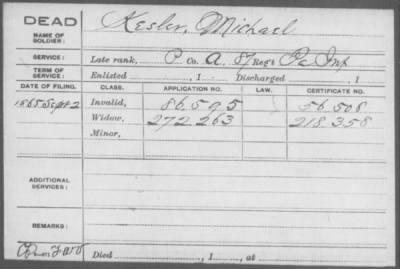 DEAD
NAME OF SOLDIER: Kesler, Michael
SERVICE: Late rank, P Co. A, 87 Reg't Pa Inf
TERM OF SERVICE: Enlisted , 1 Discharged , 1
DATE OF FILING. CLASS. APPLICATION NO. LAW. CERTIFICATE NO.
1865 Sept 2 Invalid, 86.595 56.508
Widow, 272 263 218.358
Minor,
ADDITIONAL SERVICES:
REMARKS:
Died , 1 , at